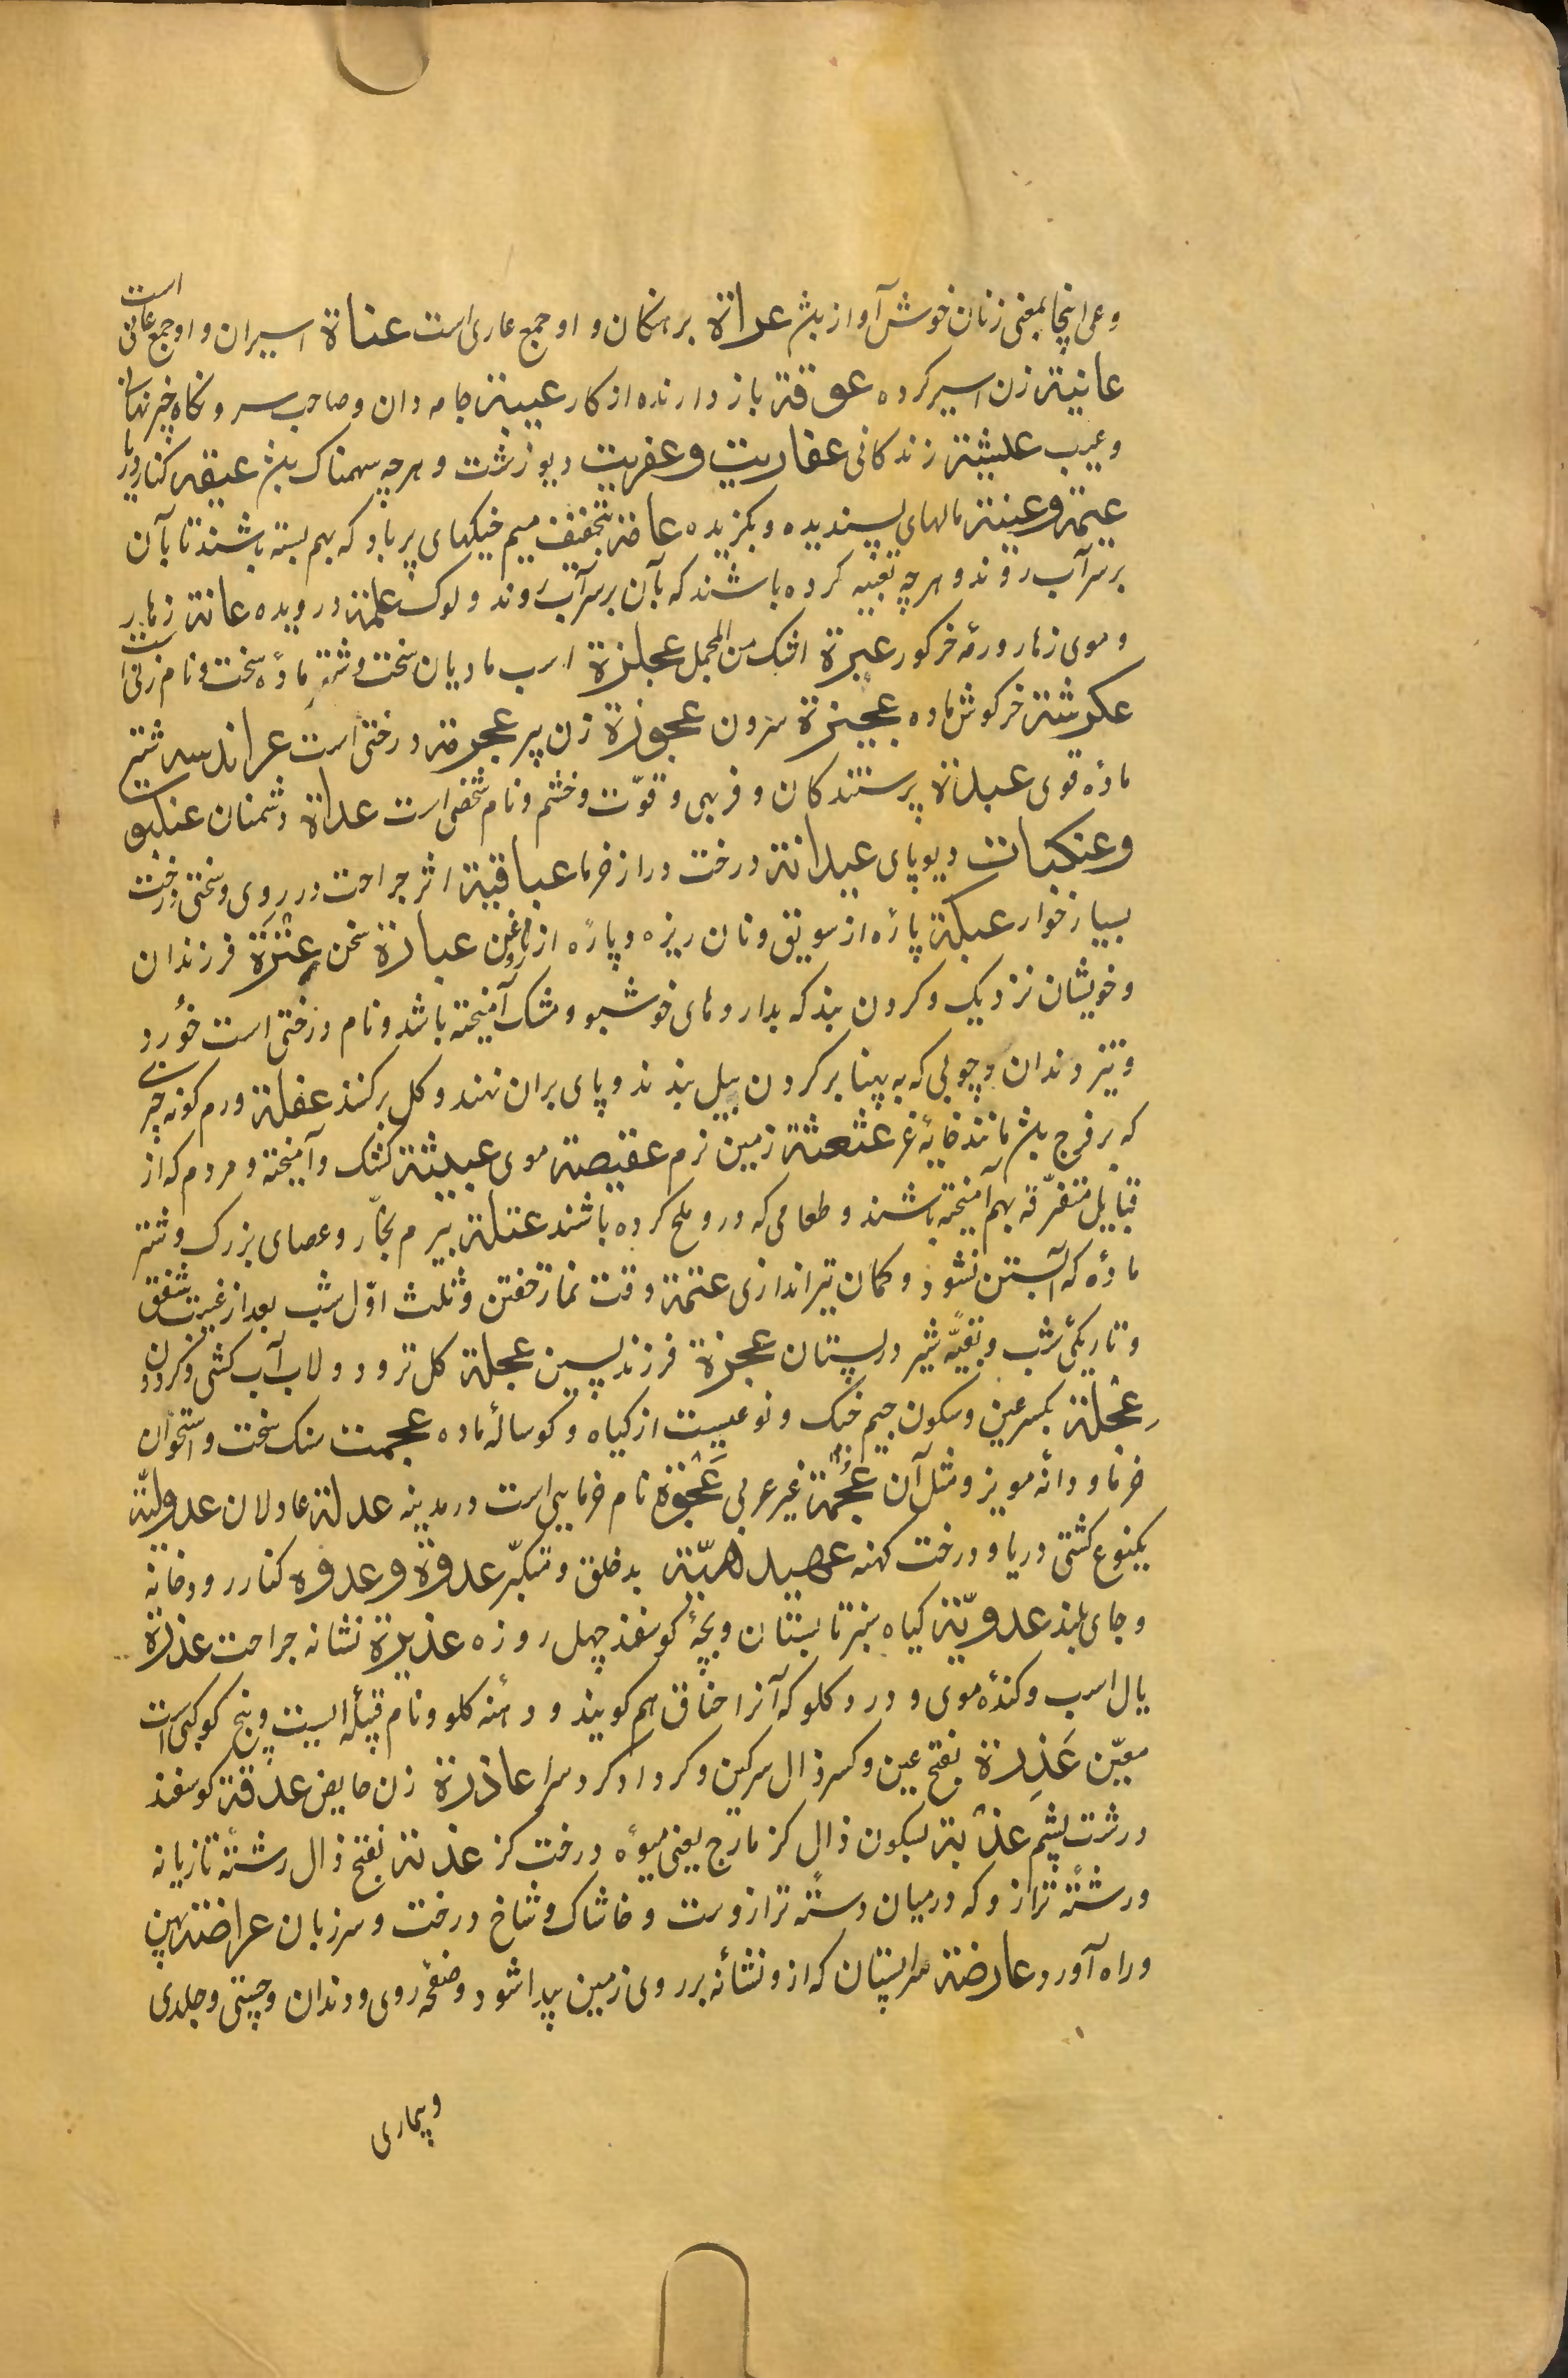 وعی اینجا بمعنی زنان خوش آواز بش عراة برهنکان و او جمع عاری است عناة اسیران و او جمع عانی است
عانیة زن اسیر کرده عوقة باز دارنده از کار عیبة جامه دان و صاحب سر و نکاه چیز نهانی
و عیب عیشة زندکانی عفاریت و عفریت دیو زشت و هرچه سهمناک بش عیقه کنار دریا
عیمة و عینة مالهای پسندیده و بکزیده عامة بتخفیف میم خیکهای پر باد که بهم بسته باشند تا بآن
بر سر آب روند و هرچه تعبیه کرده باشند که بآن بر سر آب روند و لوک علمة درویده عانة زهار
و موی زهار و رمه خر کور عبرة اشک من المجمل عجلزة اسب مادیان سخت و شتر ماده سخت و نام زنی است
عکرشة خرکوش ماده عجیزة سرون عجوزة زن پیر عجرمة درختی است عراندسه شتر
ماده قوی عبدة پرستندکان و فربهی و قوّت و خشم و نام شخصی است عداة دشمنان عنکبوت
وعنکبات دیوپای عیدانة درخت دراز خرما عباقیة اثر جراحت در روی و سختی و درخت
بسیار خوار عبکة پاره از سویق و نان ریزه و پاره از روغن عبارة سخن عترة فرزندان
و خویشان نزدیک و کردن بند که بداروهای خوشبو و مشک آمیخته باشد و نام درختی است خورد
و تیز دندان و چوبی که به پهنا بر کردن بیل بندند و پای بران نهند و کل بر کنند عفلة ورم کونه چیزی
که بر فرج بش مانند خایهٔ غر عثعثة زمین نرم عقیصة موی عبیثة کشک و آمیخته و مردم که از
قبایل متفرّقه بهم آمیخته باشند و طعامی که درو ملح کرده باشند عتلة بیرم نجّار و عصای بزرک و شتر
ماده که آبستن نشود و کمان تیر اندازی عتمة وقت نماز خفتن و ثلث اوّل شب بعد از غیبت شفق
و تاریکئ شب و بقیّه شیر در پستان عجزة فرزند پسین عجلة کل تر و دولاب آب کشی و کردون
عِجْلة بکسر عین و سکون جیم خیک و نوعیست از کیاه و کوسالهٔ ماده عجمت سنک سخت و استخوان
خرما و دانه مویز و مثل آن عُجْمَة غیر عربی عَجْوَة نام خرمایی است در مدینه عدلة عادلان عدولیّة
یکنوع کشتی دریا و درخت کهنه عیدهیّة بدخلق و متکبّر عدوة و عدوه کنار رودخانه
و جای بلند عدویّة کیاه سبز تابستان و بچهٔ کوسفند چهل روزه عذیرة نشانه جراحت عذرة
یال اسب و کندهٔ موی و درد کلو که آنرا خناق هم کویند و دهنه کلو و نام قبیله ایست و پنج کوکب است
معیّن عَذِرة بفتح عین و کسر ذال سرکین و کرداکرد سرا عاذرة زن حایض عذقة کوسفند
درشت پشم عذْبة بسکون ذال کزمازج یعنی میوهٔ درخت کز عذبة بفتح ذال رشته تازیانه
و رشته ترازو که در میان دسته ترازوست و خاشاک و شاخ درخت و سر زبان عراضة پهن
و راه آورد عارضة سر پستان که ازو نشانه بر روی زمین پیدا شود و صفحه روی و دندان و چستی و جلدی
و بیماری